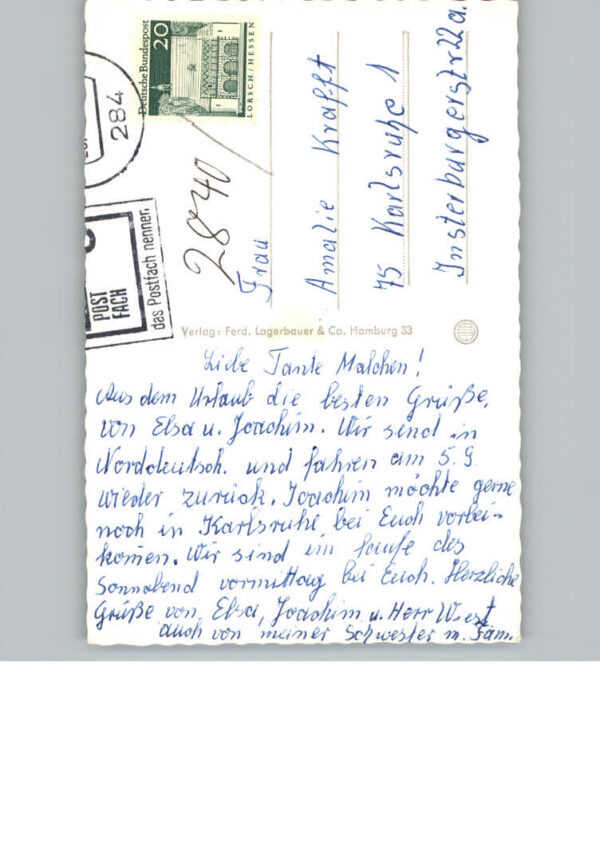 Deutsche Bundespost
20
LORSCH/HESSEN
284
POST
FACH
das Postfach nennen.
2840
Frau
Amalie Krafft
75 Karlsruhe 1
Insterburgerstr 22a.
Verlag: Ferd. Lagerbauer & Co. Hamburg 33
Liebe Tante Malchen!
Aus dem Urlaub die besten Grüße,
von Elsa u. Joachim. Wir sind in
Norddeutsch. und fahren am 5.9.
wieder zurück. Joachim möchte gerne
noch in Karlsruhe bei Euch vorbei-
komen. Wir sind im Laufe des
Sonnabend vormittag bei Euch. Herzliche
Grüße von, Elsa, Joachim u. Herr Wiest
auch von meiner Schwester m. Fam.